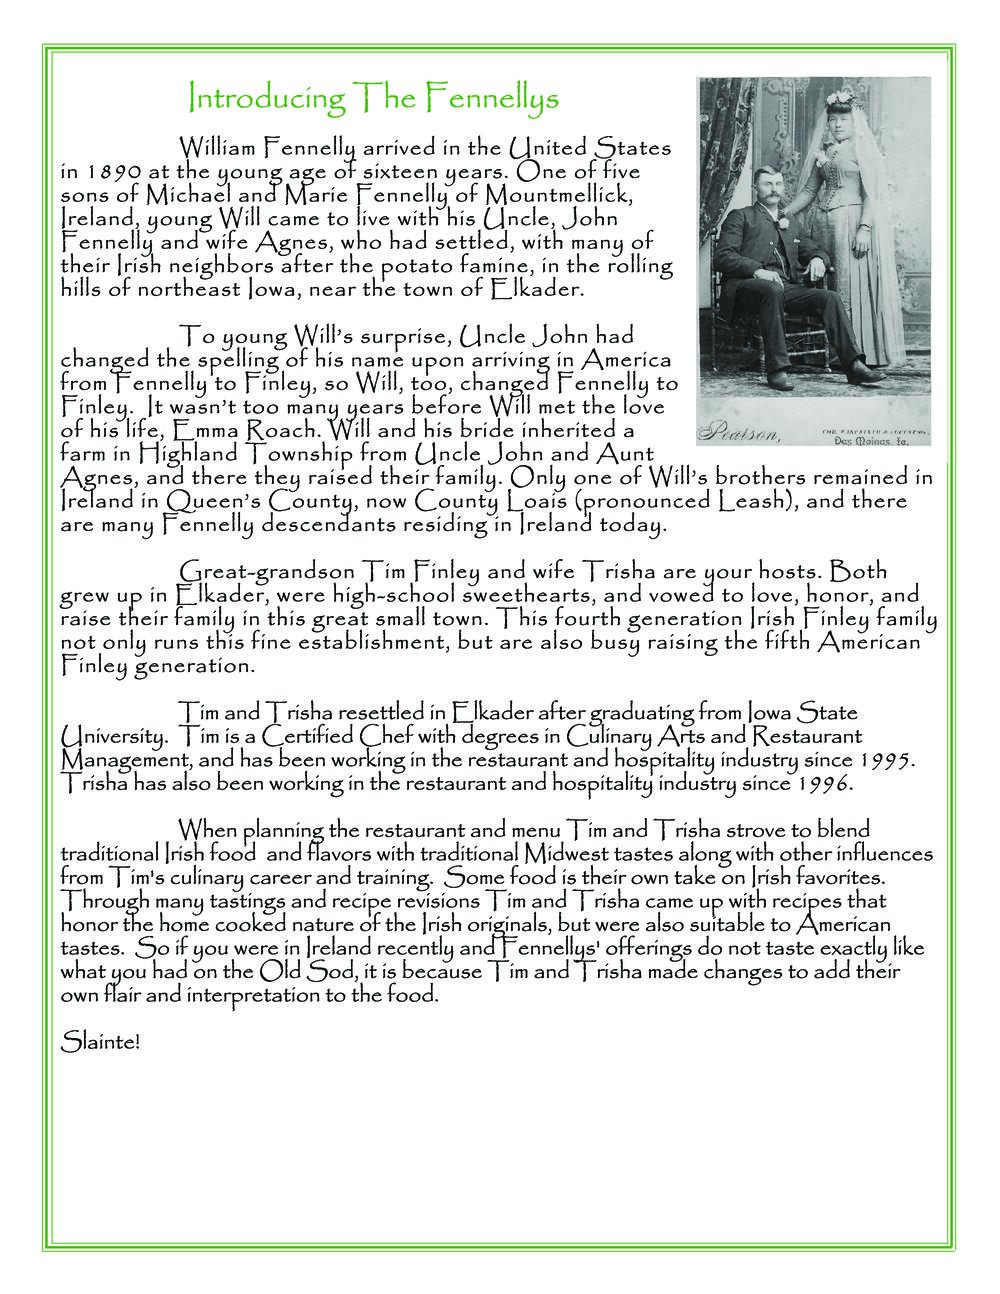 Introducing The Fennellys
William Fennelly arrived in the United States
in 1890 at the young age of sixteen years. One of five
sons of Michael and Marie Fennelly of Mountmellick,
Ireland, young Will came to live with his Uncle, John
Fennelly and wife Agnes, who had settled, with many of
their Irish neighbors after the potato famine, in the rolling
hills of northeast Iowa, near the town of Elkader.
To young Will's surprise, Uncle John had
changed the spelling of his name upon arriving in America
from Fennelly to Finley, so Will, too, changed Fennelly to
Finley. It wasn't too many years before Will met the love
of his life, Emma Roach. Will and his bride inherited a
farm in Highland Township from Uncle John and Aunt
Agnes, and there they raised their family. Only one of Will's brothers remained in
Ireland in Queen's County, now County Loais (pronounced Leash), and there
are many Fennelly descendants residing in Ireland today.
Pearson,
Des Moines, Ia.
Great-grandson Tim Finley and wife Trisha are your hosts. Both
grew up in Elkader, were high-school sweethearts, and vowed to love, honor, and
raise their family in this great small town. This fourth generation Irish Finley family
not only runs this fine establishment, but are also busy raising the fifth American
Finley generation.
Tim and Trisha resettled in Elkader after graduating from Iowa State
University. Tim is a Certified Chef with degrees in Culinary Arts and Restaurant
Management, and has been working in the restaurant and hospitality industry since 1995.
Trisha has also been working in the restaurant and hospitality industry since 1996.
When planning the restaurant and menu Tim and Trisha strove to blend
traditional Irish food and flavors with traditional Midwest tastes along with other influences
from Tim's culinary career and training. Some food is their own take on Irish favorites.
Through many tastings and recipe revisions Tim and Trisha came up with recipes that
honor the home cooked nature of the Irish originals, but were also suitable to American
tastes. So if you were in Ireland recently and Fennellys' offerings do not taste exactly like
what you had on the Old Sod, it is because Tim and Trisha made changes to add their
own flair and interpretation to the food.
Slainte!